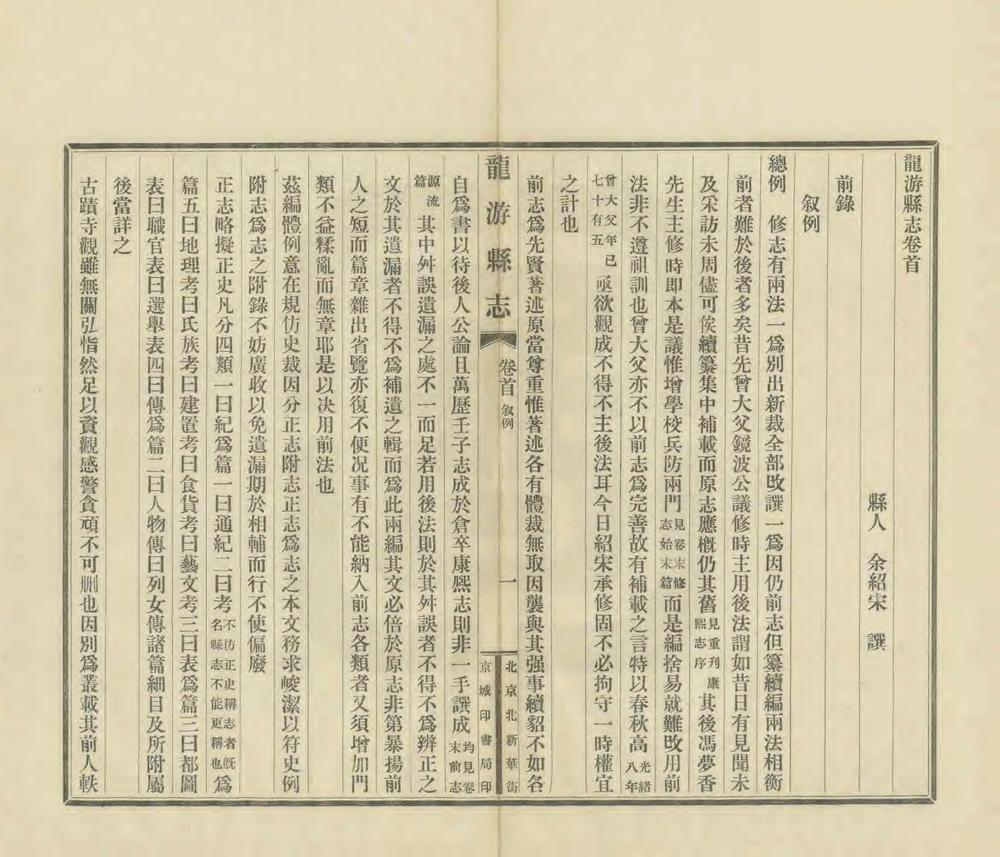 龍游縣志卷首
縣人　余紹宋　譔
前錄
敘例
總例　修志有兩法一爲別出新裁全部改譔一爲因仍前志但纂續編兩法相衡
前者難於後者多矣昔先曾大父鏡波公議修時主用後法謂如昔日有見聞未
及采訪未周儘可俟續纂集中補載而原志應槪仍其舊見重刋康熙志序其後馮夢香
先生主修時即本是議惟增學校兵防兩門見卷末修志始末篇而是編捨易就難改用前
法非不遵祖訓也曾大父亦不以前志爲完善故有補載之言特以春秋高光緒八年
曾大父年已七十有五亟欲觀成不得不主後法耳今日紹宋承修固不必拘守一時權宜
之計也
前志爲先賢著述原當尊重惟著述各有體裁無取因襲與其强事續貂不如各
龍游縣志　卷首　叙例　一　北京北新華街京城印書局印
自爲書以待後人公論且萬歷壬子志成於倉卒康熙志則非一手譔成均見卷末前志
源流篇其中舛誤遺漏之處不一而足若用後法則於其舛誤者不得不爲辨正之
文於其遺漏者不得不爲補遺之輯而爲此兩編其文必倍於原志非第暴揚前
人之短而篇章雜出省覽亦復不便况事有不能納入前志各類者又須增加門
類不益糅亂而無章耶是以决用前法也
茲編體例意在規仿史裁因分正志附志正志爲志之本文務求峻潔以符史例
附志爲志之附錄不妨廣收以免遺漏期於相輔而行不使偏廢
正志略擬正史凡分四類一曰紀爲篇一曰通紀二曰考不仿正史稱志者旣名縣志不能更稱也爲
篇五曰地理考曰氏族考曰建置考曰食貨考曰藝文考三曰表爲篇三曰都圖
表曰職官表曰選舉表四曰傳爲篇二曰人物傳曰列女傳諸篇細目及所附屬
後當詳之
古蹟寺觀雖無關弘恉然足以資觀感警貪頑不可删也因別爲叢載其前人軼